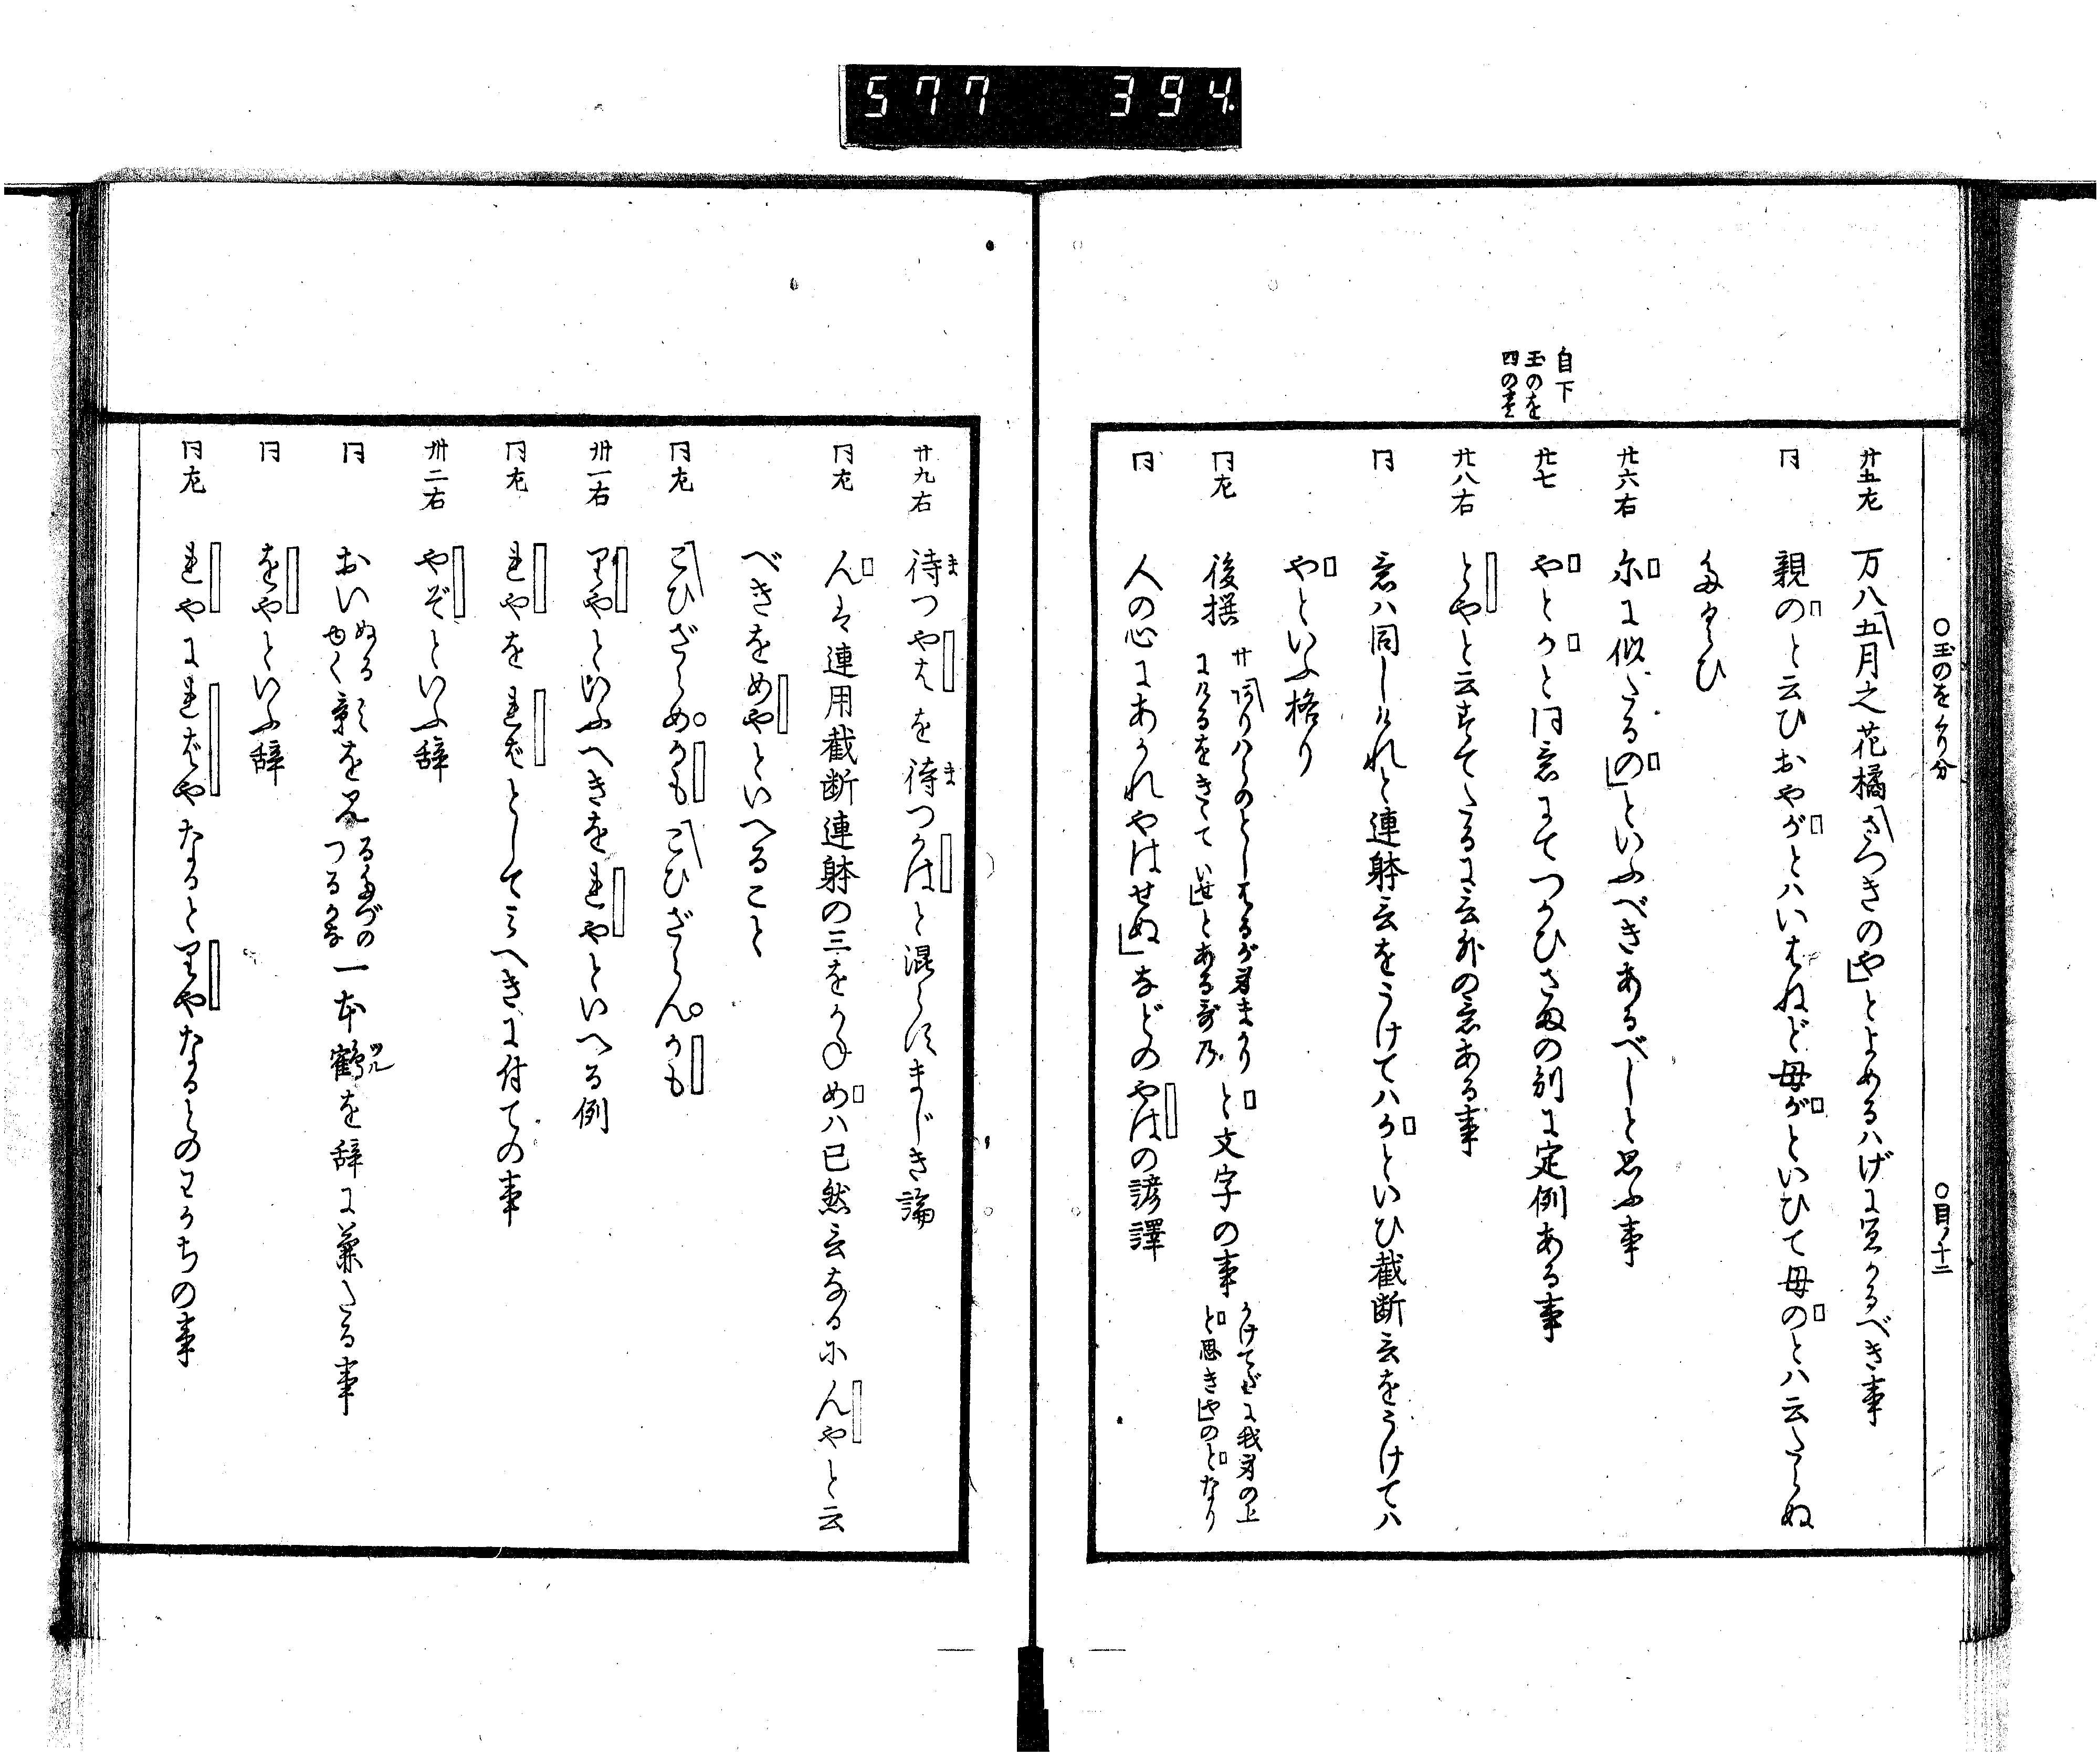 577 394
○玉のをくり分 ○目ノ十二
廿五左 万八五月之花橘さつきのや」とよめるハげに然るべき事
同 親のと云ひおやがとハいはねど母がといひて母のとハ云たらぬ
たぐひ
廿六右 尓に似たるの」といふべきあるべしと思ふ事
自下
玉のを
四の巻
廿七 やとかと同意にてつかひさまの別に定例ある事
廿八右 とやと云すてたるに言外の意ある事
同 意ハ同しけれと連躰言をうけてハかといひ截断言をうけてハ
やといふ格り
同左 後撰 と文字の事
うけてざに我身の上
と思き」やのとなり
同 人の心にあかれやはせぬ」などのやはの諺譯
廿九右 待つやはを待つかはと混らすまじき論
同左 んは連用截断連躰の三をかねめハ已然言なるにんやと云
べきをめやといへること
同左 こひざらめかもこひざらんかも
卅一右 りやといふへきをれやといへる例
同左 れやをればとしてミへきに付ての事
卅二右 やぞといふ辞
同 おい ぬる ゆく 影を見 るたづの つるかな 一本鶴を辞に兼たる事
ツル
同 をやといふ辞
同左 れやにればやなるとりやなるとのわかちの事